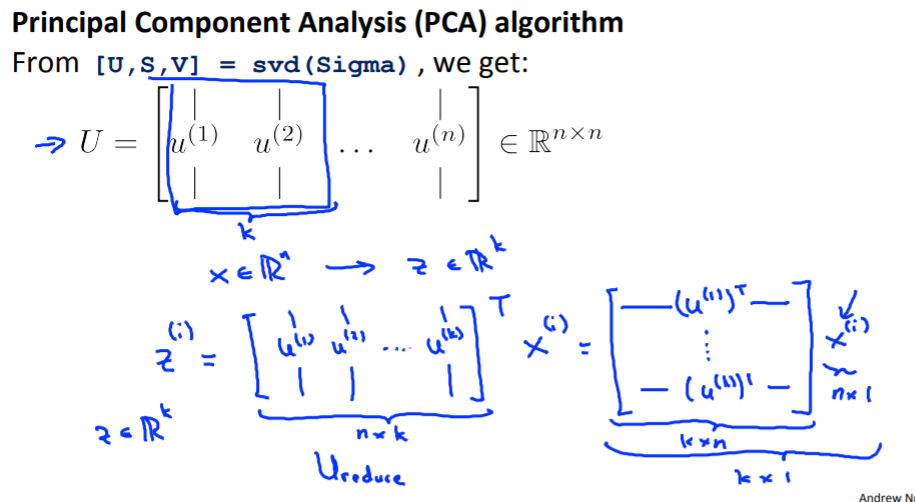 Principal Component Analysis (PCA) algorithm
From [U,S,V] = svd(Sigma) , we get:
→ U = [ | | | u⁽¹⁾ u⁽²⁾ … u⁽ⁿ⁾ | | | ] ∈ ℝⁿˣⁿ
k
x ∈ ℝⁿ → z ∈ ℝᵏ
z⁽ⁱ⁾ = [ | | | u⁽¹⁾ u⁽²⁾ .... u⁽ᵏ⁾ | | | ]ᵀ x⁽ⁱ⁾ = [ — (u⁽¹⁾)ᵀ — ⋮ — (u⁽ᵏ⁾)ᵀ — ] x⁽ⁱ⁾
n×1
z ∈ ℝᵏ
n×k
k×n
Ureduce
k×1
Andrew N